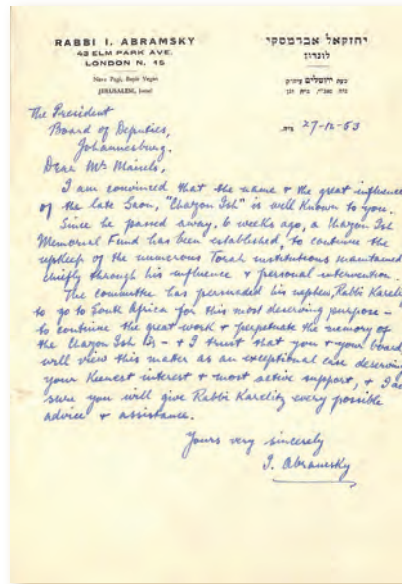 RABBI I. ABRAMSKY
43 ELM PARK AVE.
LONDON N. 15
Nave Pagi, Bayis Vegan
JERUSALEM, Israel
יחזקאל אברמסקי
לונדון
כעת ירושלים
בית וגן
ב״ה. 27-12-53
The President
Board of Deputies,
Johannesburg.
Dear Mr Maisels,
I am convinced that the name & the great influence
of the late Gaon, "Chazon Ish" is well known to you.
Since he passed away, 6 weeks ago, a Chazon Ish
Memorial Fund has been established, to continue the
upkeep of the numerous Torah institutions maintained
chiefly through his influence & personal intervention.
The committee has persuaded his nephew, Rabbi Karelitz
to go to South Africa for this most deserving purpose -
to continue the great work & perpetuate the memory of
the Chazon Ish - & I trust that you & your board
will view this matter as an exceptional case deserving
your keenest interest & most active support, & I am
sure you will give Rabbi Karelitz every possible
advice & assistance.
Yours very sincerely
I. Abramsky